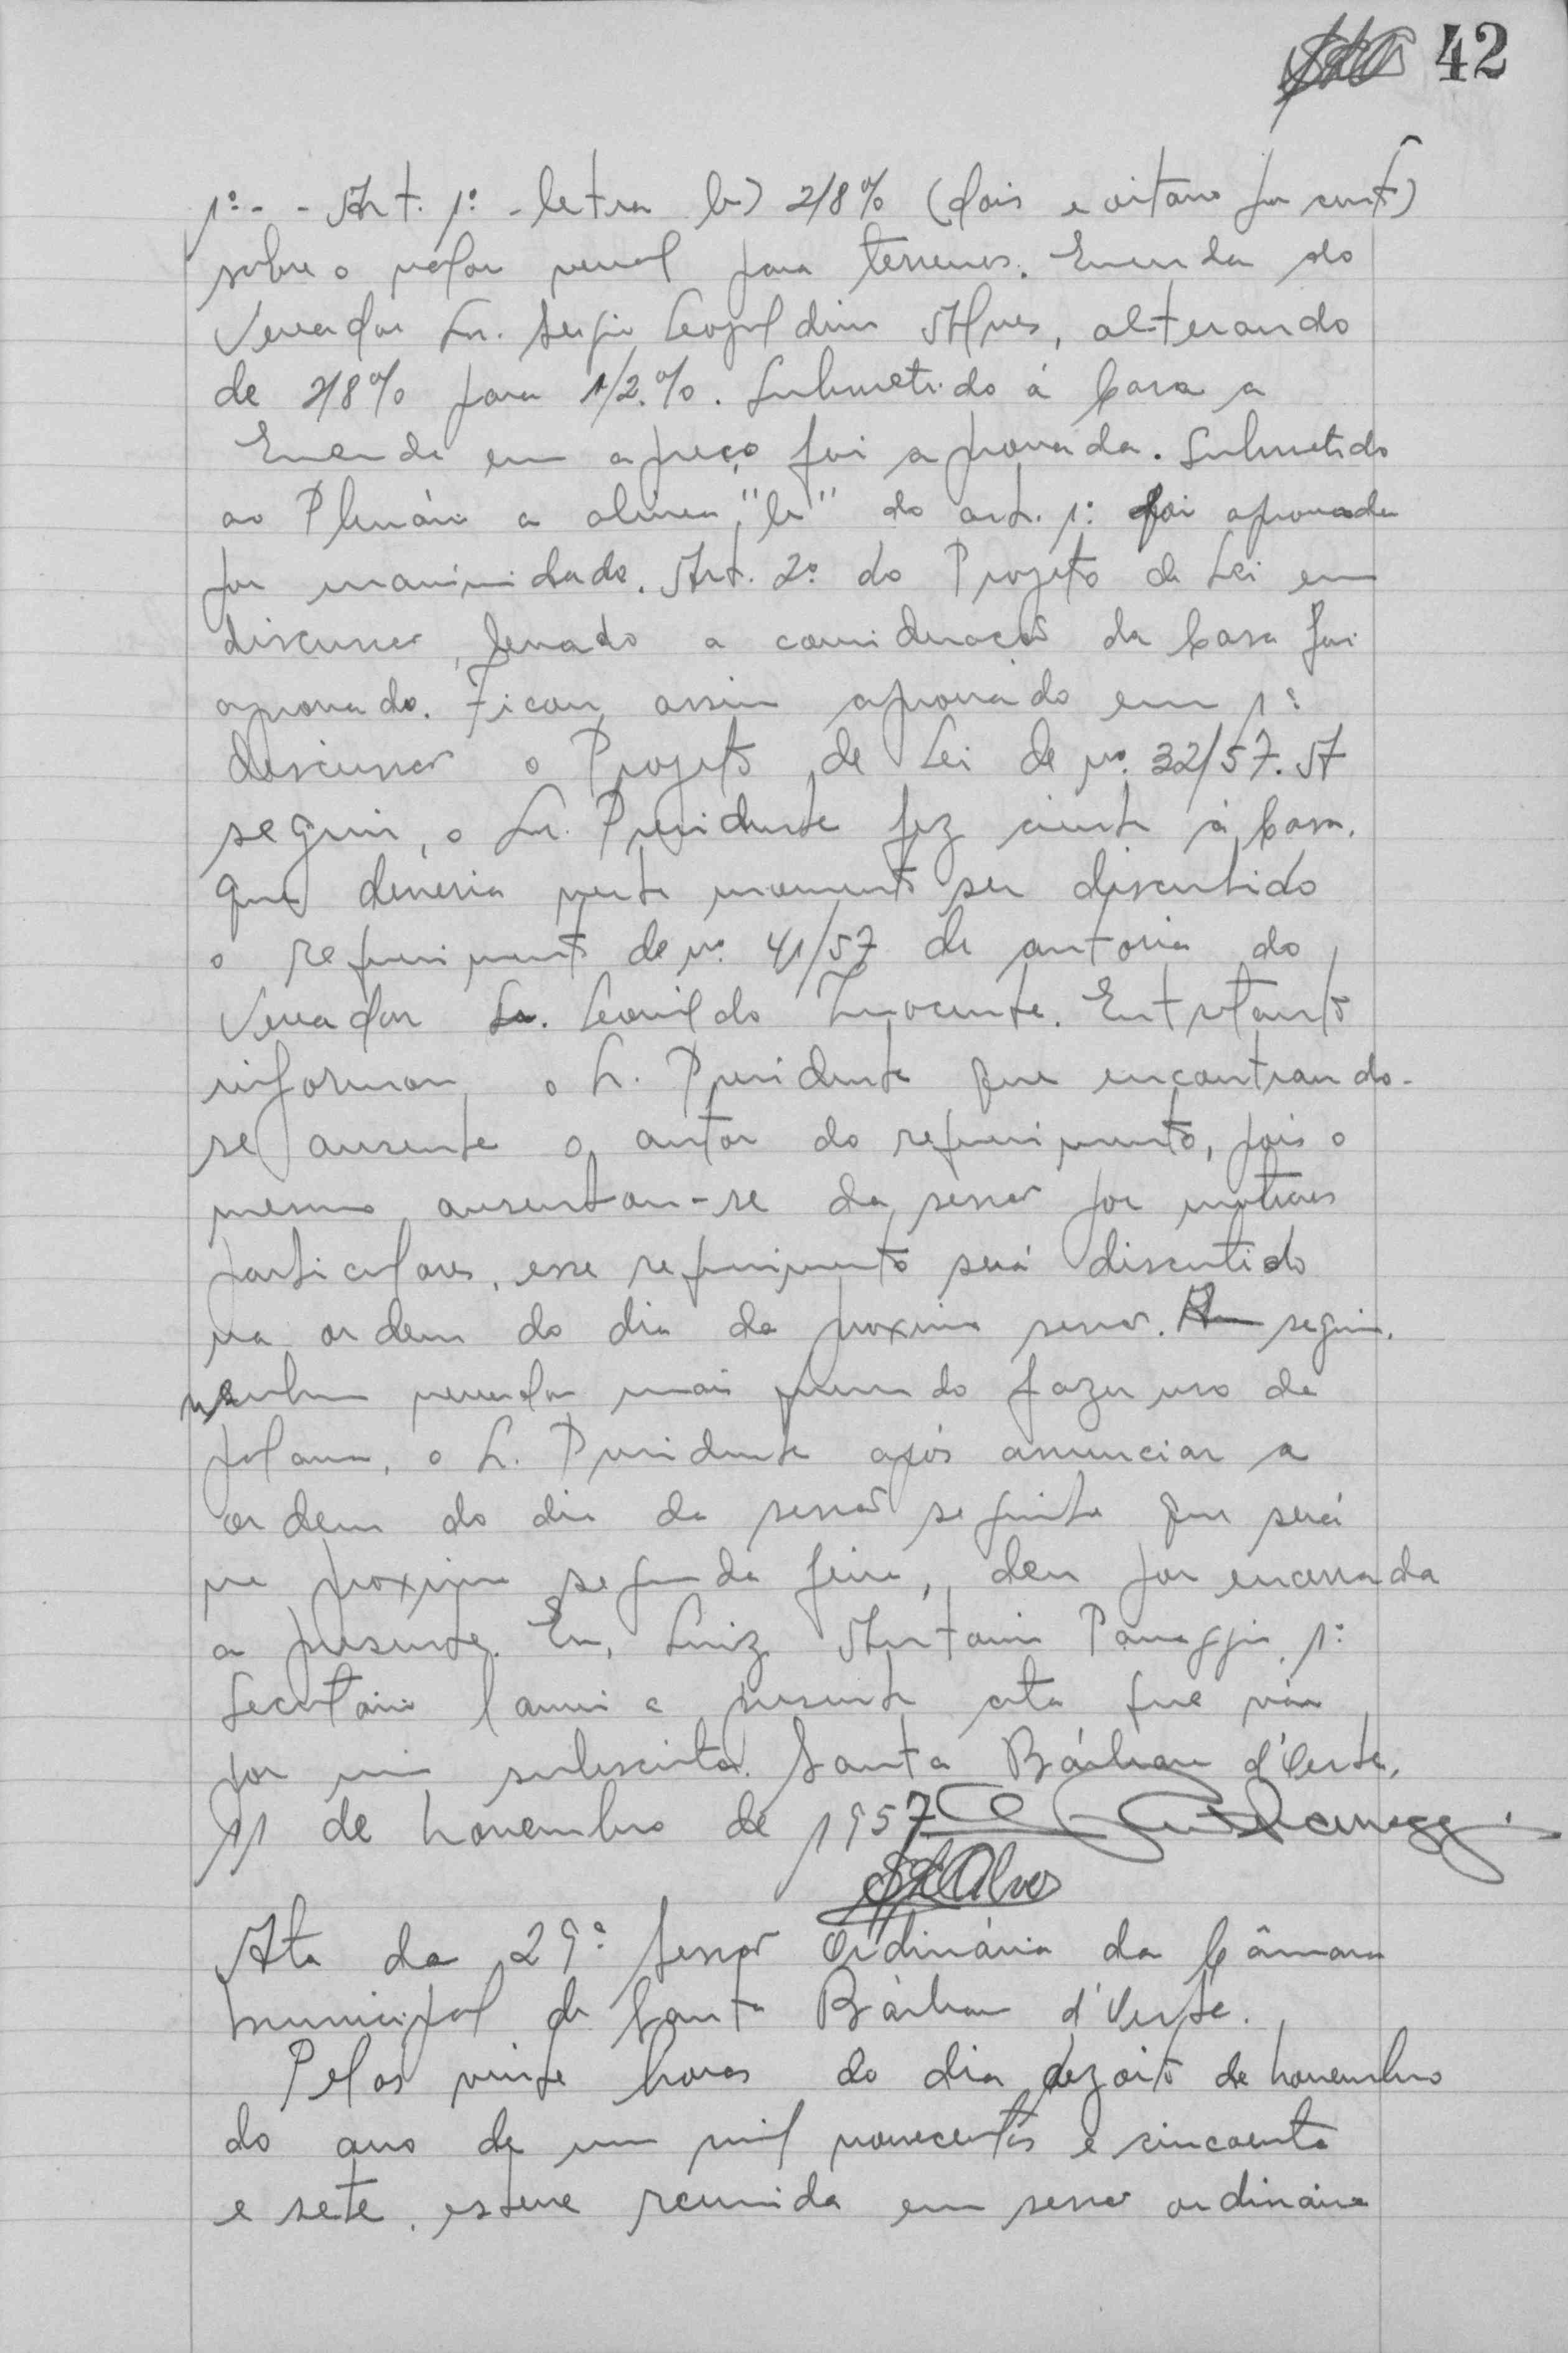 42
1º - - Art. 1º - letra b) 2/8% (dois e oitavo por cento)
sobre o valor venal para terrenos. Emenda do
Vereador Sr. Sergio Leopoldino Alves, alterando
de 2/8% para 1/2.%. Submetido á Casa a
Emenda em apreço foi aprovada. Submetido
ao Plenário a alinea "b" do art. 1º foi aprovada
por unanimidade. Art. 2º do Projeto de Lei em
discussão, levado a consideração da Casa foi
aprovado. Ficou assim aprovado em 1ª
discussão o Projeto de Lei de nº 32/57. A
seguir, o Sr. Presidente fez ciente á Casa,
que deveria neste momento ser discutido
o requerimento de nº 41/57 de autoria do
Vereador Sr. Leonildo Inocente. Entretanto
informou o Sr. Presidente que encontrando-
se ausente o autor do requerimento, pois o
mesmo ausentou-se da sessão por motivos
particulares, esse requerimento será discutido
na ordem do dia da proxima sessão. seguir,
nenhum vereador mais querendo fazer uso da
palavra, o Sr. Presidente após anunciar a
ordem do dia da sessão seguinte que será
na proxima segunda feira, deu por encerrada
a presente. Eu, Luiz Antonio Panaggio, 1º
Secretário lavrei a presente ata que vai
por mim subscrita. Santa Bárbara d'Oeste,
11 de novembro de 1957
SLAlves
Ata da 29ª Sessão Ordinária da Câmara
Municipal de Santa Bárbara d'Oeste.
Pelas vinte horas do dia dezoito de novembro
do ano de um mil novecentos e cincoenta
e sete, esteve reunida em sessão ordinária